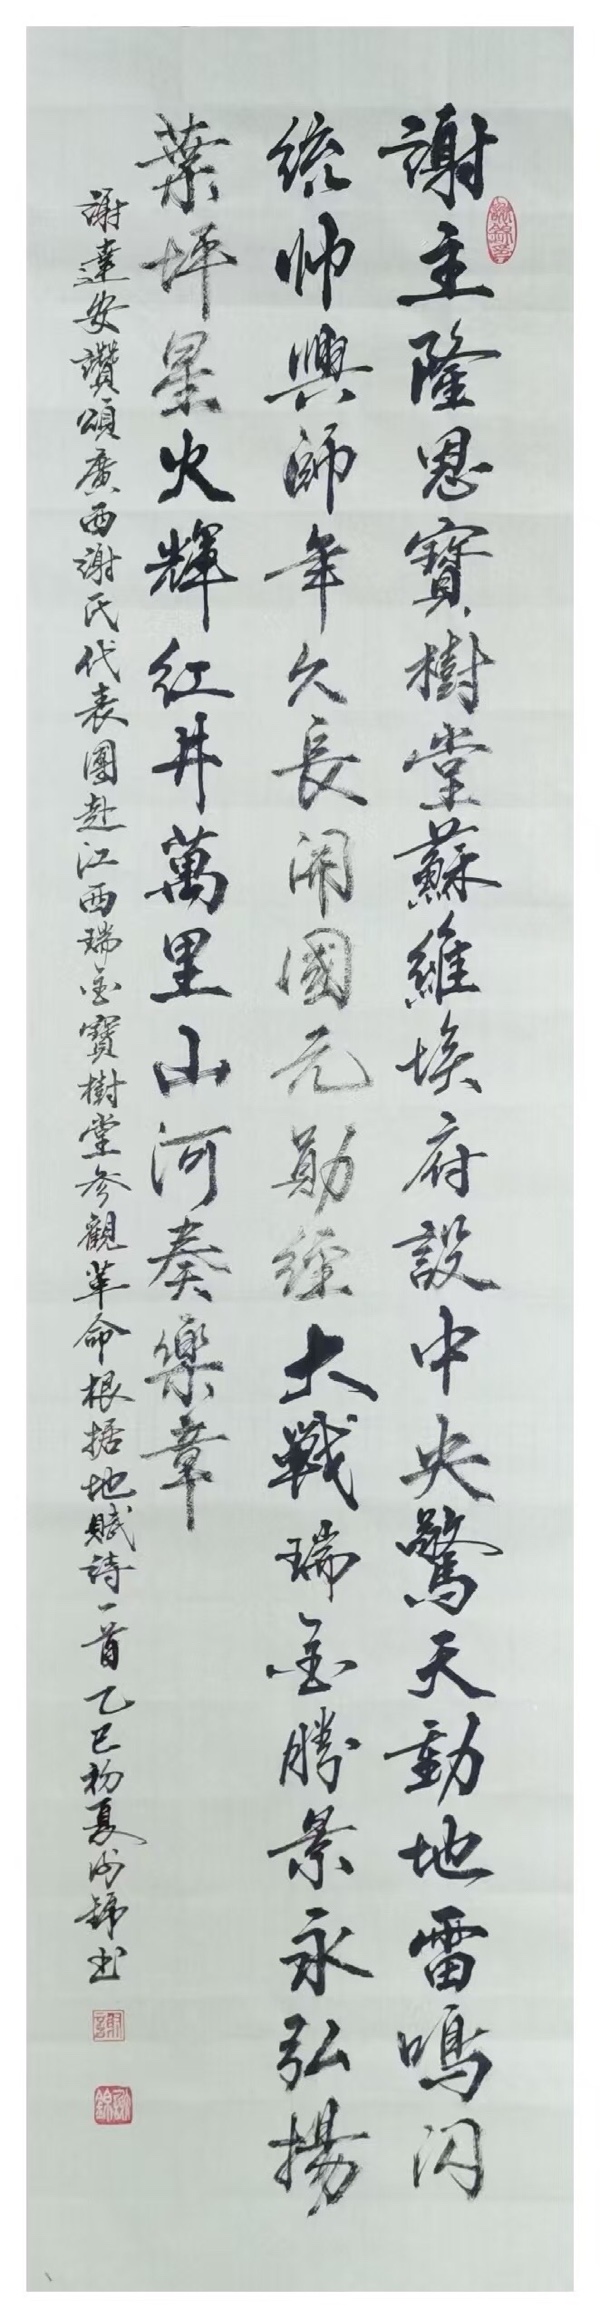 謝主隆恩寶樹堂蘇維埃府設中央驚天動地雷鳴閃
統帅興師年久長開國元勛經大戰瑞金勝景永弘揚
葉坪星火輝紅井萬里山河奏樂章
謝達安讚頌廣西謝氏代表團赴江西瑞金寶樹堂參觀革命根据地賦詩一首乙巳初夏錦书